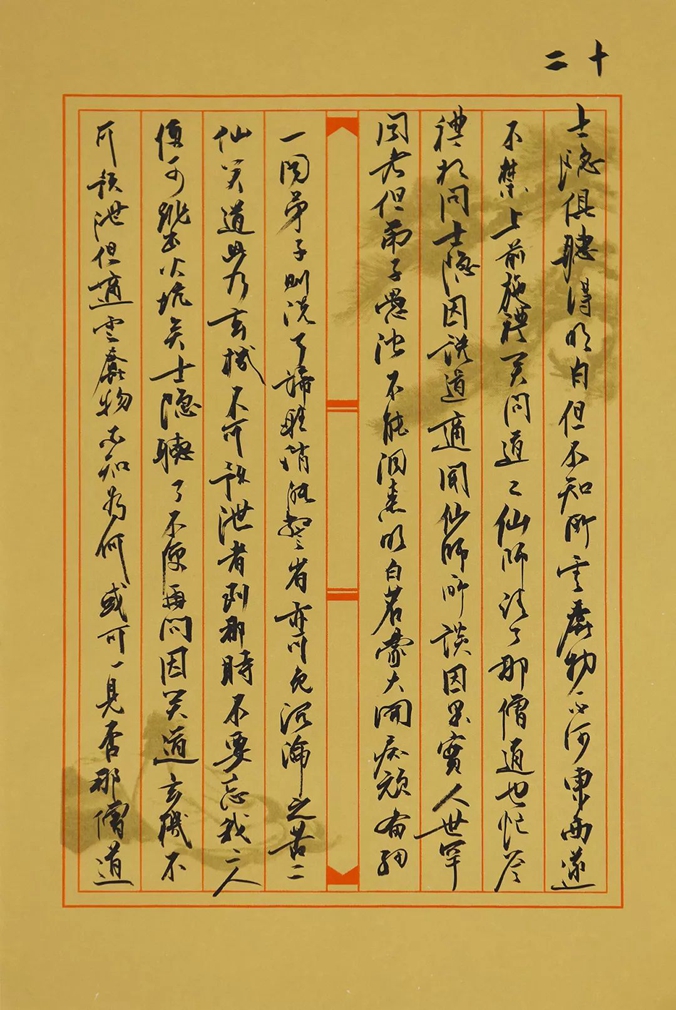 十二
士隐俱聽得明白但不知所云蠢物系何東西遂
不禁上前施禮笑問道二仙師請了那僧道也忙答
禮相問士隐因説道適聞仙師所談因果實人世罕
聞者但弟子愚浊不能洞悉明白若蒙大開痴頑备細
一聞弟子則洗耳諦聽稍能警省亦可免沉淪之苦二
仙笑道此乃玄機不可預泄者到那時不要忘我二人
便可跳出火坑矣士隐聽了不便再問因笑道玄機不
可預泄但適云蠢物不知為何或可一見否那僧道